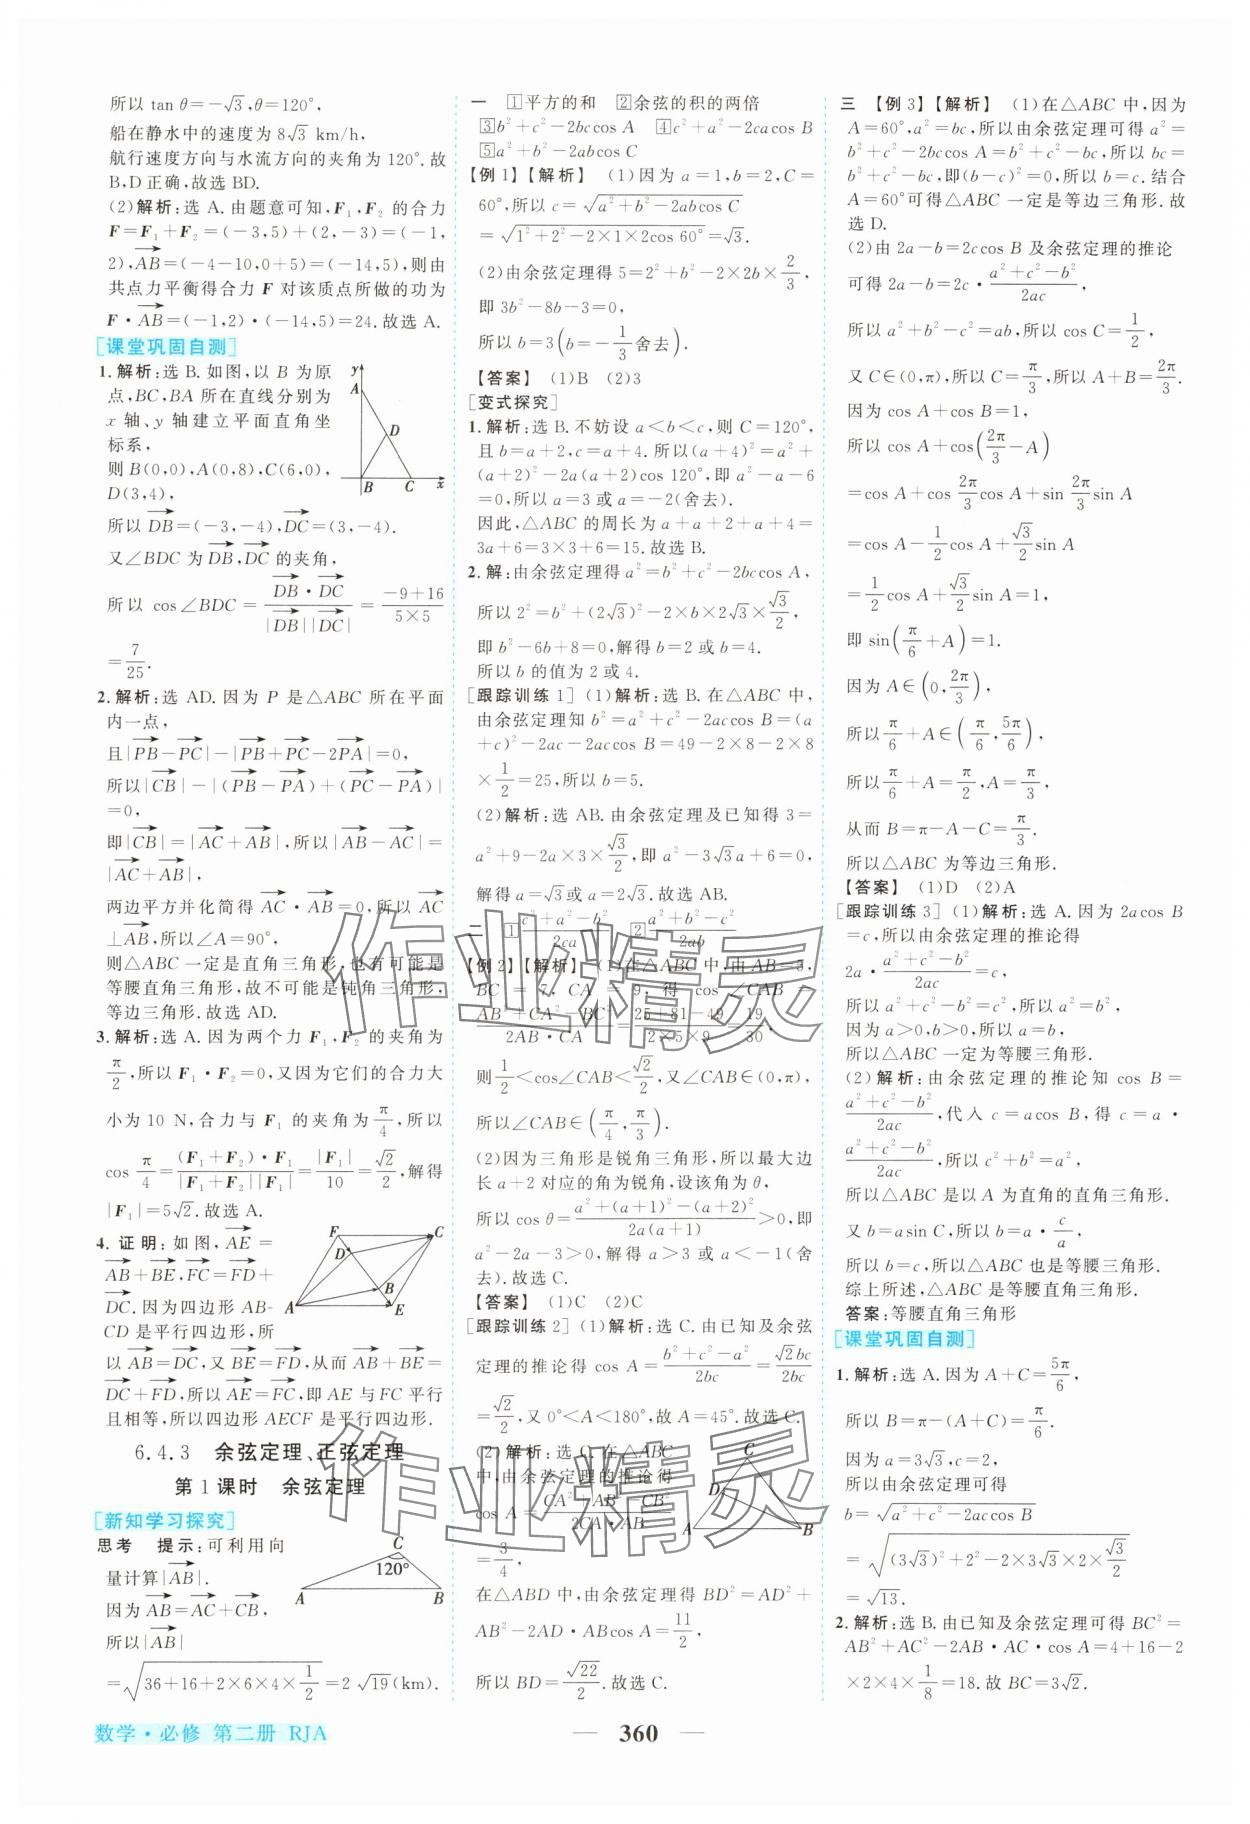 所以 tan θ=-√3,θ=120°,
船在静水中的速度为 8√3 km/h,
航行速度方向与水流方向的夹角为 120°.故
B,D 正确,故选 BD.
(2)解析:选 A.由题意可知,F₁,F₂ 的合力
F=F₁+F₂=(-3,5)+(2,-3)=(-1,
2),AB→=(-4-10,0+5)=(-14,5),则由
共点力平衡得合力 F 对该质点所做的功为
F·AB→=(-1,2)·(-14,5)=24.故选 A.
[课堂巩固自测]
1.解析:选 B.如图,以 B 为原
点,BC,BA 所在直线分别为
x 轴、y 轴建立平面直角坐
标系,
则 B(0,0),A(0,8),C(6,0),
D(3,4),
y A D B C x
所以 DB→=(-3,-4),DC→=(3,-4).
又∠BDC 为 DB→,DC→ 的夹角,
所以 cos∠BDC=(DB→·DC→)/(|DB→||DC→|)=(-9+16)/(5×5)
=7/25.
2.解析:选 AD.因为 P 是△ABC 所在平面
内一点,
且|PB→-PC→|-|PB→+PC→-2PA→|=0,
所以|CB→|-|(PB→-PA→)+(PC→-PA→)|
=0,
即|CB→|=|AC→+AB→|,所以|AB→-AC→|=
|AC→+AB→|,
两边平方并化简得 AC→·AB→=0,所以 AC→
⊥AB→,所以∠A=90°,
则△ABC 一定是直角三角形,也有可能是
等腰直角三角形,故不可能是钝角三角形,
等边三角形.故选 AD.
3.解析:选 A.因为两个力 F₁,F₂ 的夹角为
π/2,所以 F₁·F₂=0,又因为它们的合力大
小为 10 N,合力与 F₁ 的夹角为π/4,所以
cos π/4=((F₁+F₂)·F₁)/(|F₁+F₂||F₁|)=|F₁|/10=√2/2,解得
|F₁|=5√2.故选 A.
4.证明:如图,AE→=
AB→+BE→,FC→=FD→+
DC→.因为四边形 AB-
CD 是平行四边形,所
F C D B A E
以 AB→=DC→,又 BE→=FD→,从而 AB→+BE→=
DC→+FD→,所以 AE→=FC→,即 AE 与 FC 平行
且相等,所以四边形 AECF 是平行四边形.
6.4.3 余弦定理、正弦定理
第 1 课时 余弦定理
[新知学习探究]
思考 提示:可利用向
量计算|AB→|.
因为 AB→=AC→+CB→,
所以|AB→|
C 120° A B
=√(36+16+2×6×4×1/2)=2√19(km).
一 ①平方的和 ②余弦的积的两倍
③b²+c²-2bccos A ④c²+a²-2cacos B
⑤a²+b²-2abcos C
[例 1][解析] (1)因为 a=1,b=2,C=
60°,所以 c=√(a²+b²-2abcos C)
=√(1²+2²-2×1×2cos 60°)=√3.
(2)由余弦定理得 5=2²+b²-2×2b×2/3,
即 3b²-8b-3=0,
所以 b=3(b=-1/3舍去).
【答案】 (1)B (2)3
[变式探究]
1.解析:选 B.不妨设 a<b<c,则 C=120°,
且 b=a+2,c=a+4.所以(a+4)²=a²+
(a+2)²-2a(a+2)cos 120°,即 a²-a-6
=0,所以 a=3 或 a=-2(舍去).
因此,△ABC 的周长为 a+a+2+a+4=
3a+6=3×3+6=15.故选 B.
2.解:由余弦定理得 a²=b²+c²-2bccos A,
所以 2²=b²+(2√3)²-2×b×2√3×√3/2,
即 b²-6b+8=0,解得 b=2 或 b=4.
所以 b 的值为 2 或 4.
[跟踪训练 1] (1)解析:选 B.在△ABC 中,
由余弦定理知 b²=a²+c²-2accos B=(a
+c)²-2ac-2accos B=49-2×8-2×8
×1/2=25,所以 b=5.
(2)解析:选 AB.由余弦定理及已知得 3=
a²+9-2a×3×√3/2,即 a²-3√3a+6=0,
解得 a=√3或 a=2√3.故选 AB.
二 ①(c²+a²-b²)/2ca ②(a²+b²-c²)/2ab
[例 2][解析] (1)在△ABC 中,由 AB=5,
BC=7,CA=9,得 cos∠CAB=
(AB²+CA²-BC²)/(2AB·CA)=(25+81-49)/(2×5×9)=19/30,
则1/2<cos∠CAB<√2/2,又∠CAB∈(0,π),
所以∠CAB∈(π/4,π/3).
(2)因为三角形是锐角三角形,所以最大边
长 a+2 对应的角为锐角,设该角为 θ,
所以 cos θ=(a²+(a+1)²-(a+2)²)/(2a(a+1))>0,即
a²-2a-3>0,解得 a>3 或 a<-1(舍
去).故选 C.
【答案】 (1)C (2)C
[跟踪训练 2] (1)解析:选 C.由已知及余弦
定理的推论得 cos A=(b²+c²-a²)/2bc=√2bc/2bc
=√2/2,又 0°<A<180°,故 A=45°.故选 C.
(2)解析:选 C.在△ABC
中,由余弦定理的推论得
cos A=(CA²+AB²-CB²)/(2CA·AB)
=3/4,
C D A B
在△ABD 中,由余弦定理得 BD²=AD²+
AB²-2AD·ABcos A=11/2,
所以 BD=√22/2.故选 C.
三 [例 3][解析] (1)在△ABC 中,因为
A=60°,a²=bc,所以由余弦定理可得 a²=
b²+c²-2bccos A=b²+c²-bc,所以 bc=
b²+c²-bc,即(b-c)²=0,所以 b=c.结合
A=60°可得△ABC 一定是等边三角形.故
选 D.
(2)由 2a-b=2ccos B 及余弦定理的推论
可得 2a-b=2c·(a²+c²-b²)/2ac,
所以 a²+b²-c²=ab,所以 cos C=1/2,
又 C∈(0,π),所以 C=π/3,所以 A+B=2π/3.
因为 cos A+cos B=1,
所以 cos A+cos(2π/3-A)
=cos A+cos 2π/3cos A+sin 2π/3sin A
=cos A-1/2cos A+√3/2sin A
=1/2cos A+√3/2sin A=1,
即 sin(π/6+A)=1.
因为 A∈(0,2π/3),
所以π/6+A∈(π/6,5π/6),
所以π/6+A=π/2,A=π/3,
从而 B=π-A-C=π/3.
所以△ABC 为等边三角形.
【答案】 (1)D (2)A
[跟踪训练 3] (1)解析:选 A.因为 2acos B
=c,所以由余弦定理的推论得
2a·(a²+c²-b²)/2ac=c,
所以 a²+c²-b²=c²,所以 a²=b²,
因为 a>0,b>0,所以 a=b,
所以△ABC 一定为等腰三角形.
(2)解析:由余弦定理的推论知 cos B=
(a²+c²-b²)/2ac,代入 c=acos B,得 c=a·
(a²+c²-b²)/2ac,所以 c²+b²=a²,
所以△ABC 是以 A 为直角的直角三角形.
又 b=asin C,所以 b=a·c/a,
所以△ABC 也是等腰三角形.
综上所述,△ABC 是等腰直角三角形.
答案:等腰直角三角形
[课堂巩固自测]
1.解析:选 A.因为 A+C=5π/6,
所以 B=π-(A+C)=π/6.
因为 a=3√3,c=2,
所以由余弦定理得
b=√(a²+c²-2accos B)
=√((3√3)²+2²-2×3√3×2×√3/2)
=√13.
2.解析:选 B.由已知及余弦定理可得 BC²=
AB²+AC²-2AB·AC·cos A=4+16-2
×2×4×1/8=18.故 BC=3√2.
数学·必修 第二册 RJA
360
作业精灵
作业精灵